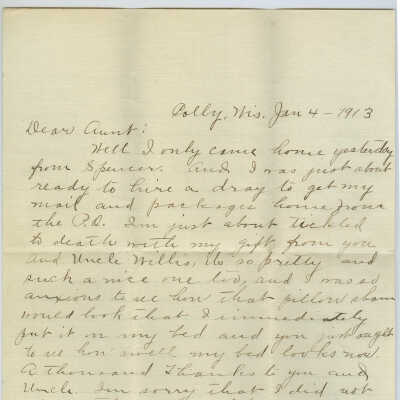 Polly, Wis. Jan 4 - 1913
Dear Aunt:
Well I only came home yesterday
from Spencer. And I was just about
ready to hire a dray to get my
mail and packages home from
the P.O. I'm just about tickled
to death with my gift from you
and Uncle Willis, Its so pretty and
such a nice one too, and I was so
anxious to see how that pillow sham
would look that I immediately
put it on my bed and you just ought
to see how swell my bed looks now.
A thousand thanks to you and
Uncle. I'm sorry that I did not